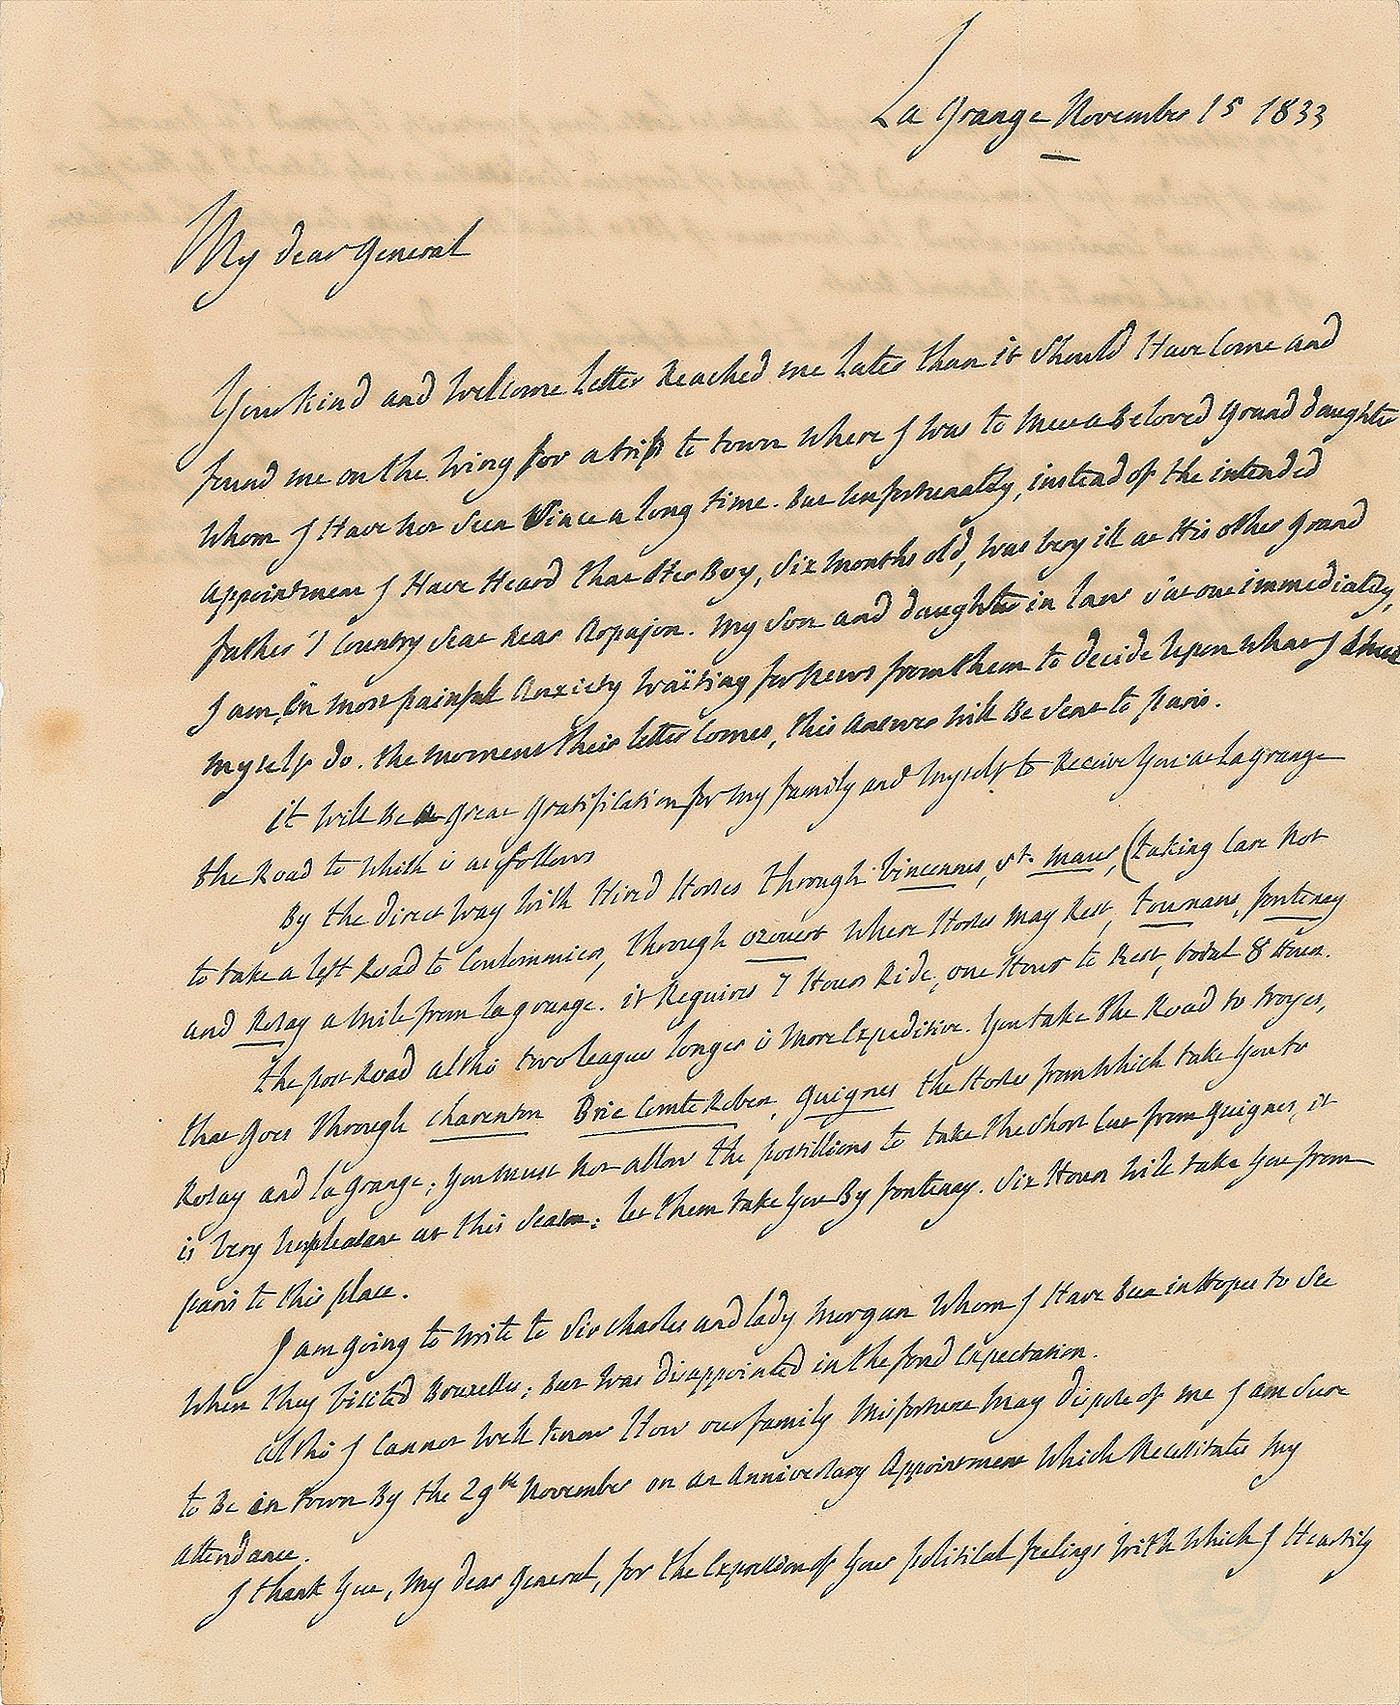 La Grange November 15 1833
My dear General
Your kind and Welcome Letter Reached me Later than it Should Have Come and
found me on the Wing for a trip to town Where I Was to Meet a Beloved grand daughter
Whom I Have not Seen Since a long time. But Unfortunately, instead of the intended
appointment I Have Heard that Her Boy, Six Months old, Was very ill at His other grand
father's Country Seat Near Arpajon. My Son and daughter in law set out immediately,
I am, in most painful Anxiety Waïting for News from them to decide Upon What I Shall
myself do. the moment their letter Comes, this Answer Will Be Sent to paris.
it Will Be a great gratification for My family and Myself to Receive You at La grange
the Road to Which is as follows
By the direct Way With Hired Horses through Vincennes, St. Maur, (taking Care Not
to take a left Road to Coulommiers, through Ozouer Where Horses May Rest, tournans, fontenay
and Rosay a Mile from La grange. it Requires 7 Hours Ride, one Hour to Rest, total 8 Hours.
the post Road altho two leagues longer is More Expeditive. You take the Road to troyes,
that goes through Charenton Brie Comte Robert, Guignes the Horses from Which take You to
Rosay and La grange; You Must Not allow the postillions to take the Short Cut from guignes, it
is Very Unpleasant at this Season: let them take You By fontenay. Six Hours Will take You from
paris to this place.
I am going to Write to Sir Charles and lady Morgan Whom I Have Been in Hopes to See
When they Visited Bruxelles; But Was disappointed in the fond Expectation.
altho I Cannot Well know How our family Misfortune May dispose of me I am Sure
to Be in town By the 29th November on an Anniversary Appointment Which Necessitates My
attendance.
I thank You, My dear General, for the Expression of Your political feelings With Which I Heartily